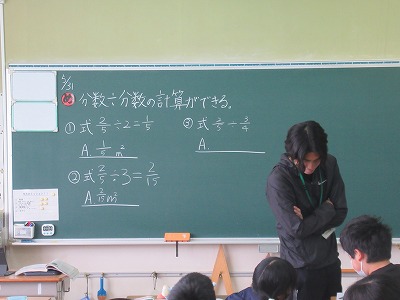 5/31
め 分数÷分数の計算ができる。
① 式 2/5÷2=1/5
A. 1/5 m²
② 式 2/5÷3=2/15
A. 2/15 m²
③ 式 2/5÷3/4
A.